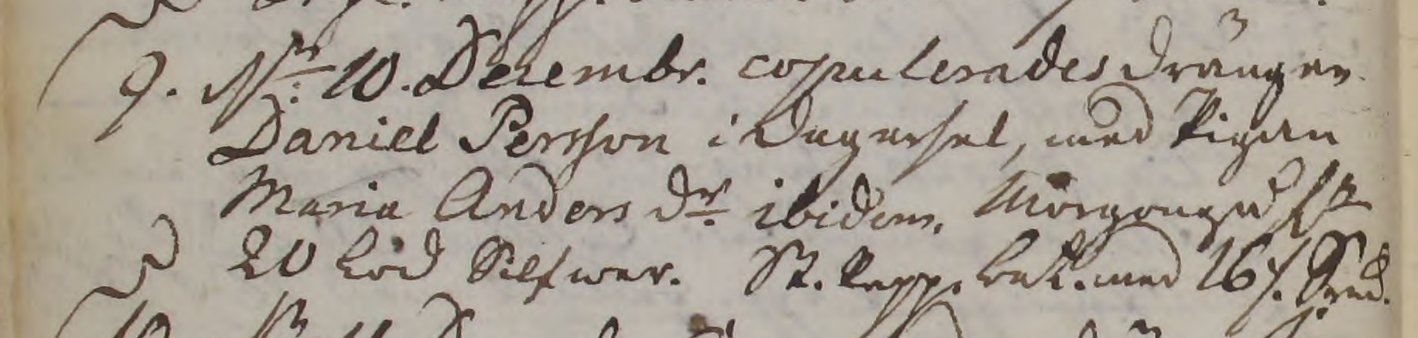 9. Nr: 10. Decembr. copulerades Drängen
Daniel Persson i Dagersel, med Pigan
Maria Anders Dr. ibidem. Morgongåf
20 Lod Silfwer. St. Papp. bet. med 16 s.